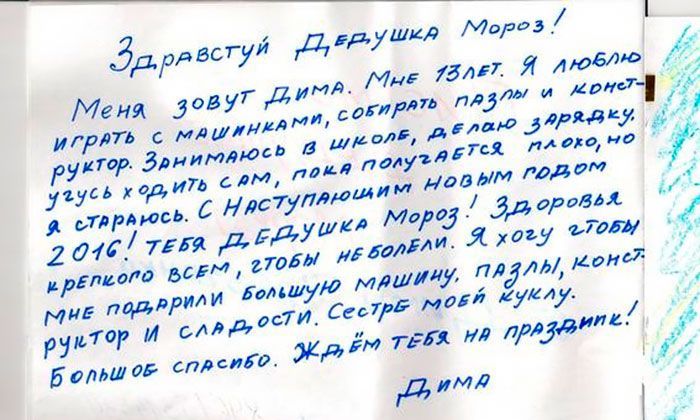 Здравстуй Дедушка Мороз!
Меня зовут Дима. Мне 13 лет. Я люблю
играть с машинками, собирать пазлы и конст-
руктор. Занимаюсь в школе, делаю зарядку,
угусь ходить сам, пока получается плохо, но
я стараюсь. С Наступающим новым годом
2016! тебя Дедушка Мороз! Здоровья
крепкого всем, гтобы не болели. Я хогу гтобы
мне подарили большую машину, пазлы, конст-
руктор и сладости. Сестре моей куклу.
Большое спасибо. Ждём тебя на праздник!
Дима